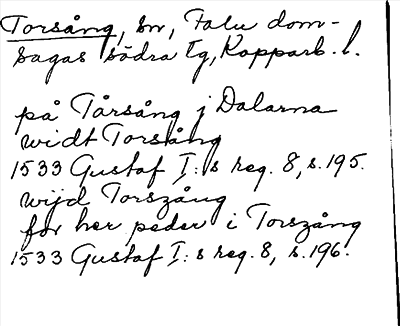 Torsång, sn, Falu dom-
sagas södra tg, Kopparb. l.
på Tårsång j Dalarna
widt Torsång
1533 Gustaf I:s reg. 8, s. 195.
wijd Torszång
för her peder i Torszång
1533 Gustaf I:s reg. 8, s. 196.